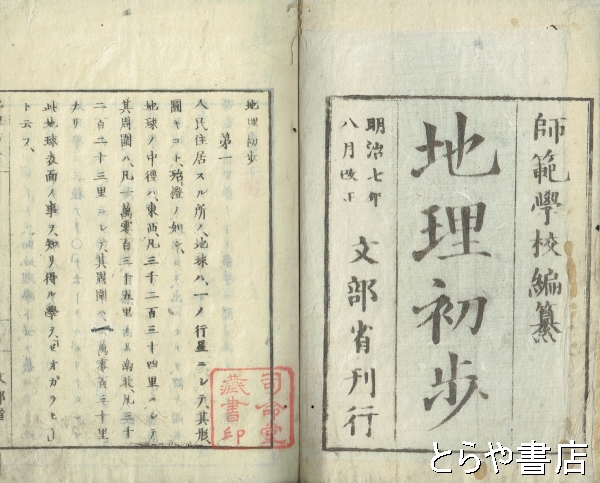 師範學校編纂
地理初歩
明治七年
八月改正
文部省刊行
地理初歩
第一
人民住居スル所ハ、地球ハ、一ノ行星ニシテ、其形
圓キコト、殆橙ノ如シ
地球ノ中徑ハ、東西、凡三千二百三十四里ニシテ
其周圍ハ、凡一萬零百三十五里
南北、凡三千
二百二十三里ニシテ、其周圍ハ、一萬零百三十里
ナリ
此地球表面ノ事ヲ知リ得ル學ヲ、「ゼオガラヒー」
ト云フ、
司命堂
藏書印
文部省
とらや書店